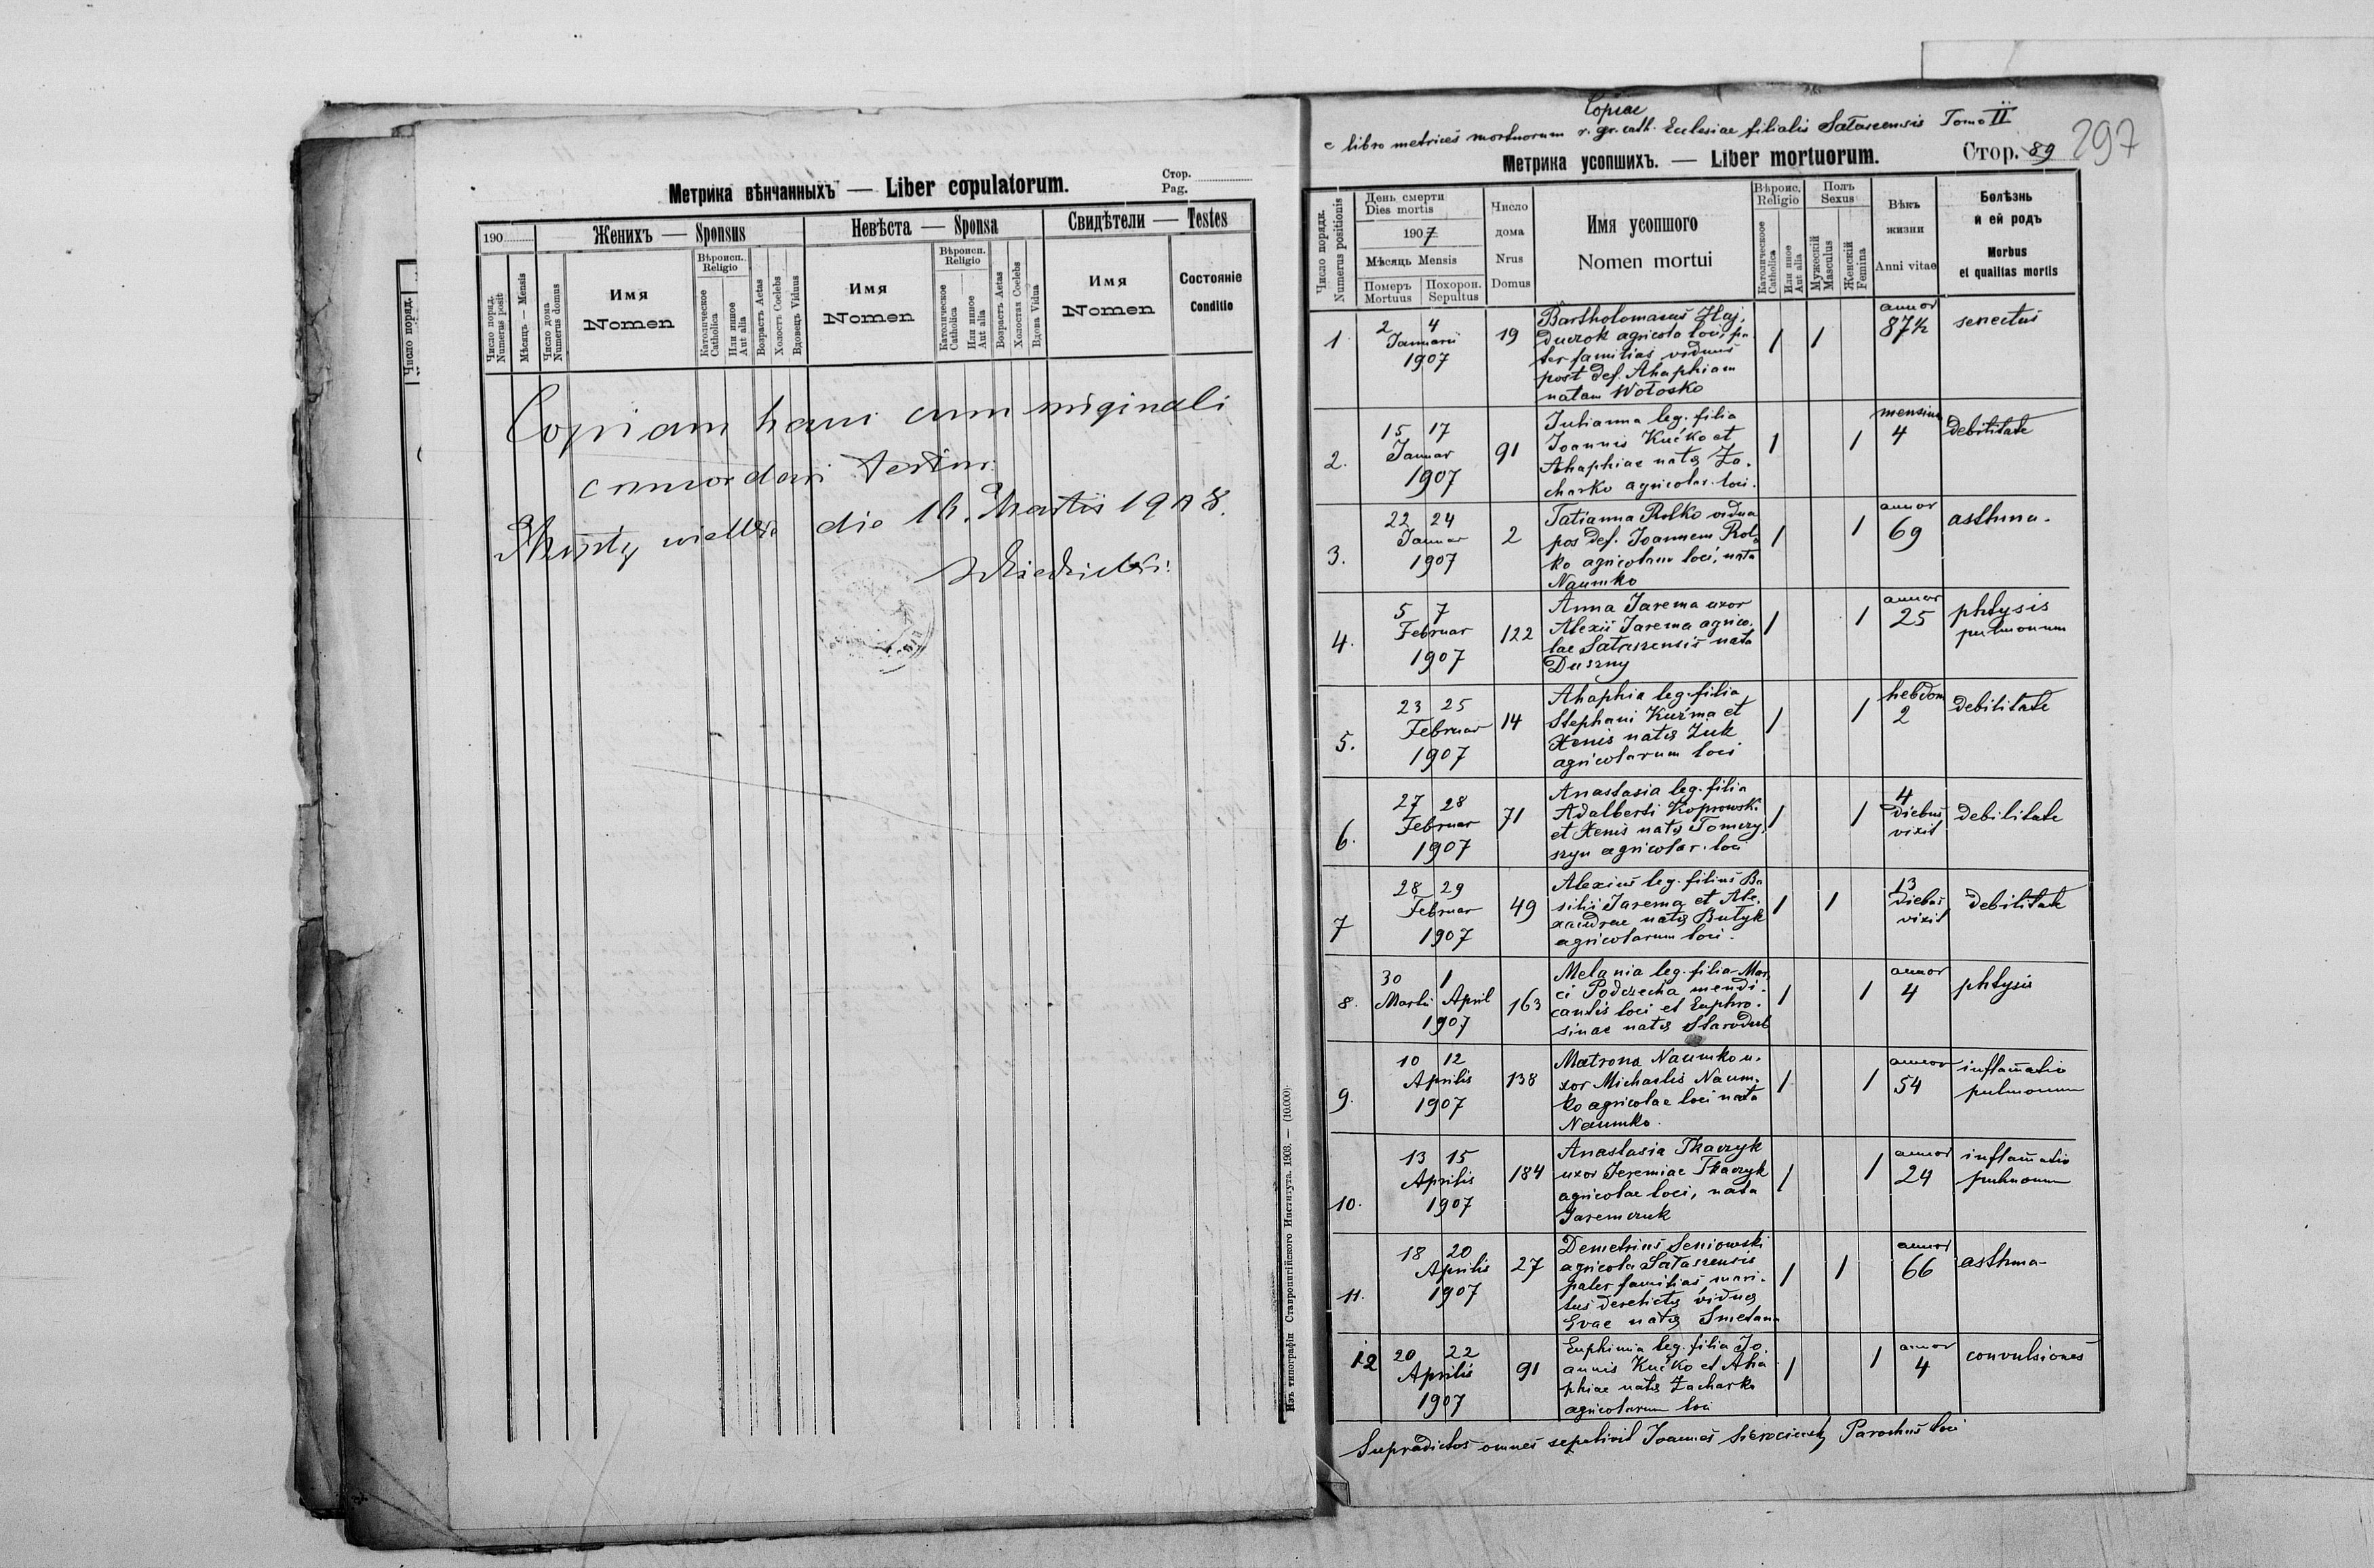 Метрика вѣнчанныхъ — Liber copulatorum.
Стор.
Pag.
190
Женихъ — Sponsus
Невѣста — Sponsa
Свидѣтели — Testes
Число поряд.
Numerus posit
Мѣсяць — Mensis
Число дома
Numerus domus
Имя
Nomen
Вѣроисп.
Religio
Католическое
Catholica
Или иное
Aut alia
Возрастъ Aetas
Холостъ Coelebs
Вдовецъ Viduus
Имя
Nomen
Вѣроисп.
Religio
Католическое
Catholica
Или иное
Aut alia
Возрастъ Aetas
Холостая Coelebs
Вдова Vidua
Имя
Nomen
Состояніе
Conditio
Copiam hanc cum originali
concordare testor.
die 16. Martii 1908.
Изъ типографіи Ставропигійского Института. 1903. — (10.000)
Число поряд.
Copiae
e libro metrices mortuorum r. gr. cath. Ecclesiae filialis Tomo II
297
Метрика усопшихъ. — Liber mortuorum.
Стор. 89
Число порядк.
Numerus positionis
День смерти
Dies mortis
1907
Мѣсяць Mensis
Померъ
Mortuus
Похорон.
Sepultus
Число
дома
Nrus
Domus
Имя усопшого
Nomen mortui
Вѣроис.
Religio
Католическое
Catholica
Или иное
Aut alia
Полъ
Sexus
Мужескій
Masculus
Женскій
Femina
Вѣкъ
жизни
Anni vitae
Болѣзнь
и ей родъ
Morbus
et qualitas mortis
1 2 4 Januarii 1907 19
Bartholomaeus Haj.
duczok agricola loci, pa
ter familias viduus
post def. Ahaphiam
natam Wołosko
1 1 annor 87½ senectus
2. 15 17 Januar 1907 91
Julianna leg. filia
Joannis Kućko et
Ahaphiae natae Za.
charko agricolar. loci.
1 1 mensium 4 debilitate
3. 22 24 Januar 1907 2
Tatianna Rolko vidua
pos def. Joannem Rol
ko agricolam loci, nata
Naumko
1 1 annor 69 asthma.
4. 5 7 Februar 1907 122
Anna Jarema uxor
Alexii Jarema agrico.
lae nata
Duszny
1 1 annor 25 phtysis
pulmonum
5. 23 25 Februar 1907 14
Ahaphia leg. filia
Stephani Kuźma et
Xenis natae Żuk
agricolarum loci
1 1 hebdom 2 debilitate
6. 27 28 Februar 1907 71
Anastasia leg. filia
Adalberti Koprowski
et Xenis natae Tomczy
szyn agricolar. loci
1 1 4 diebus vixit debilitate
7 28 29 Februar 1907 49
Alexius leg. filius Ba
silii Jarema et Ale.
xandrae natae Butyk
agricolarum loci.
1 1 13 diebus vixit debilitate
8. 30 1 Martii April 1907 163
Melania leg. filia Mar.
ci mendi.
cantis loci et Euphro.
sinae natae Starodub
1 1 annor 4 phtysis
9. 10 12 Aprilis 1907 138
Matrona Naumko u.
xor Michaelis Naum.
ko agricolae loci nata
Naumko.
1 1 annor 54 inflam̄atio
pulmonum
10. 13 15 Aprilis 1907 184
Anastasia Tkaczyk
uxor Jeremiae Tkaczyk
agricolae loci, nata
Jaremczuk
1 1 annor 24 inflam̄atio
pulmonum
11. 18 20 Aprilis 1907 27
Demetrius Seniowski
agricola
pater familias, mari.
tus derelictae viduae
Evae natae Smetana
1 1 annor 66 asthma
12 20 22 Aprilis 1907 91
Euphimia leg. filia Jo.
annis Kućko et Aha
phiae natae Zacharko
agricolarum loci
1 1 annor 4 convulsiones
Supradictos omnes sepelivit Joannes Parochus loci